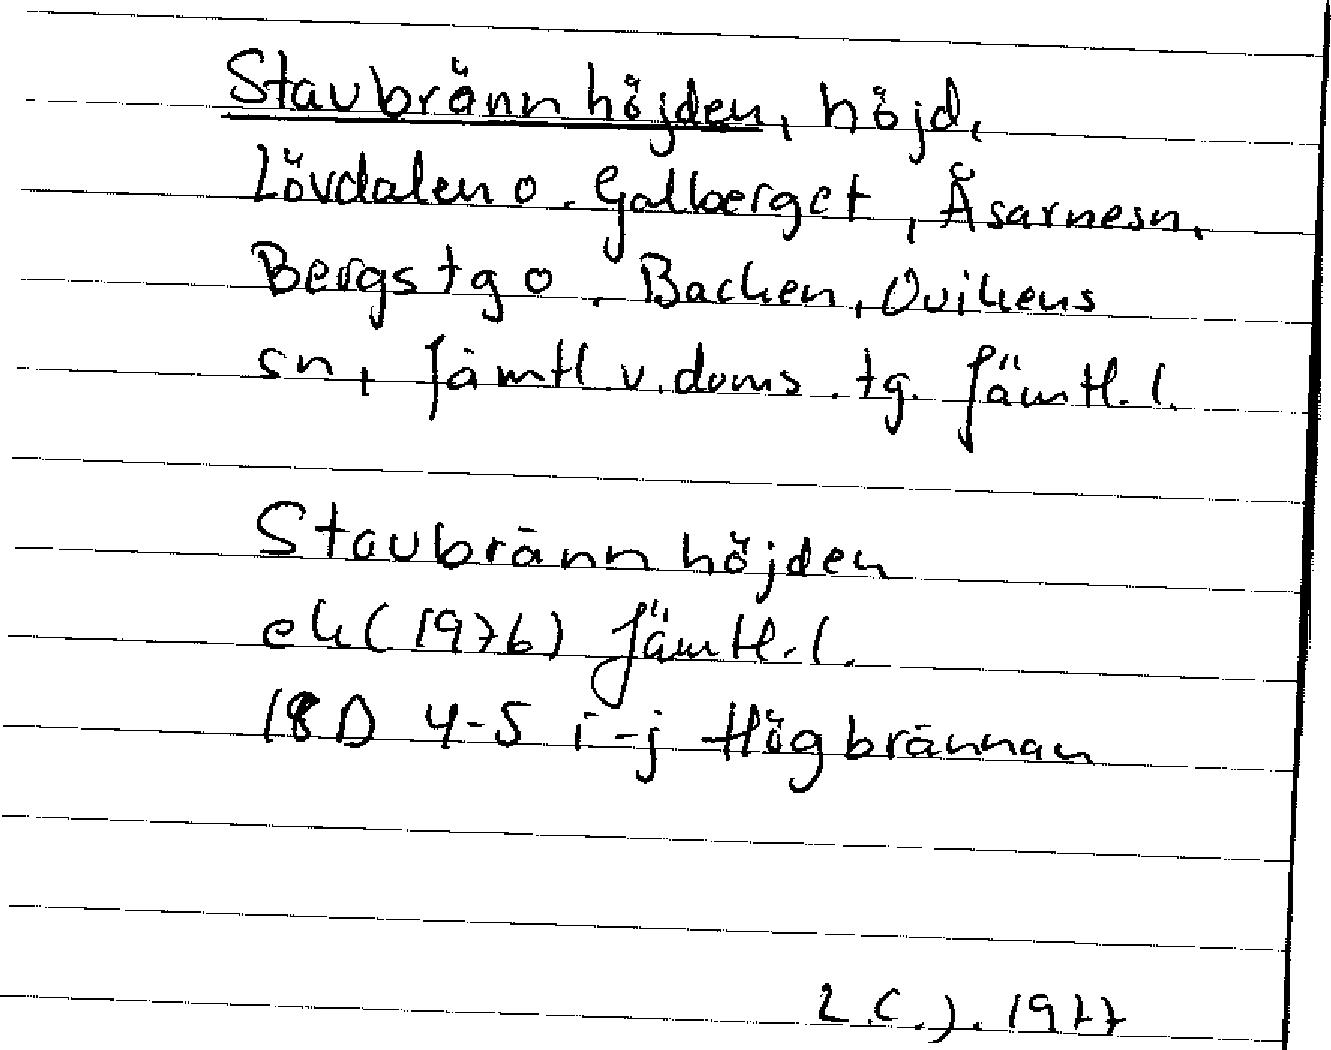 Staubrännhöjden, höjd,
Lövdalen o. Galberget, Åsarnesn,
Bergs tg o. Backen, Ovikens
sn, Jämtl v. doms. tg. Jämtl. l.
Staubrännhöjden
ek (1976) Jämtl. l.
18D 4-5 i-j Högbrännan
L.C.J. 1977